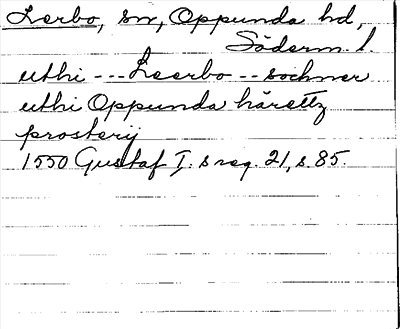 Lerbo, sn, Oppunda hd,
Söderm. l.
uthi --- Leerbo -- sochner
uthi Oppunda häretz
prosterij
1550 Gustaf I. s reg. 21, s. 85.